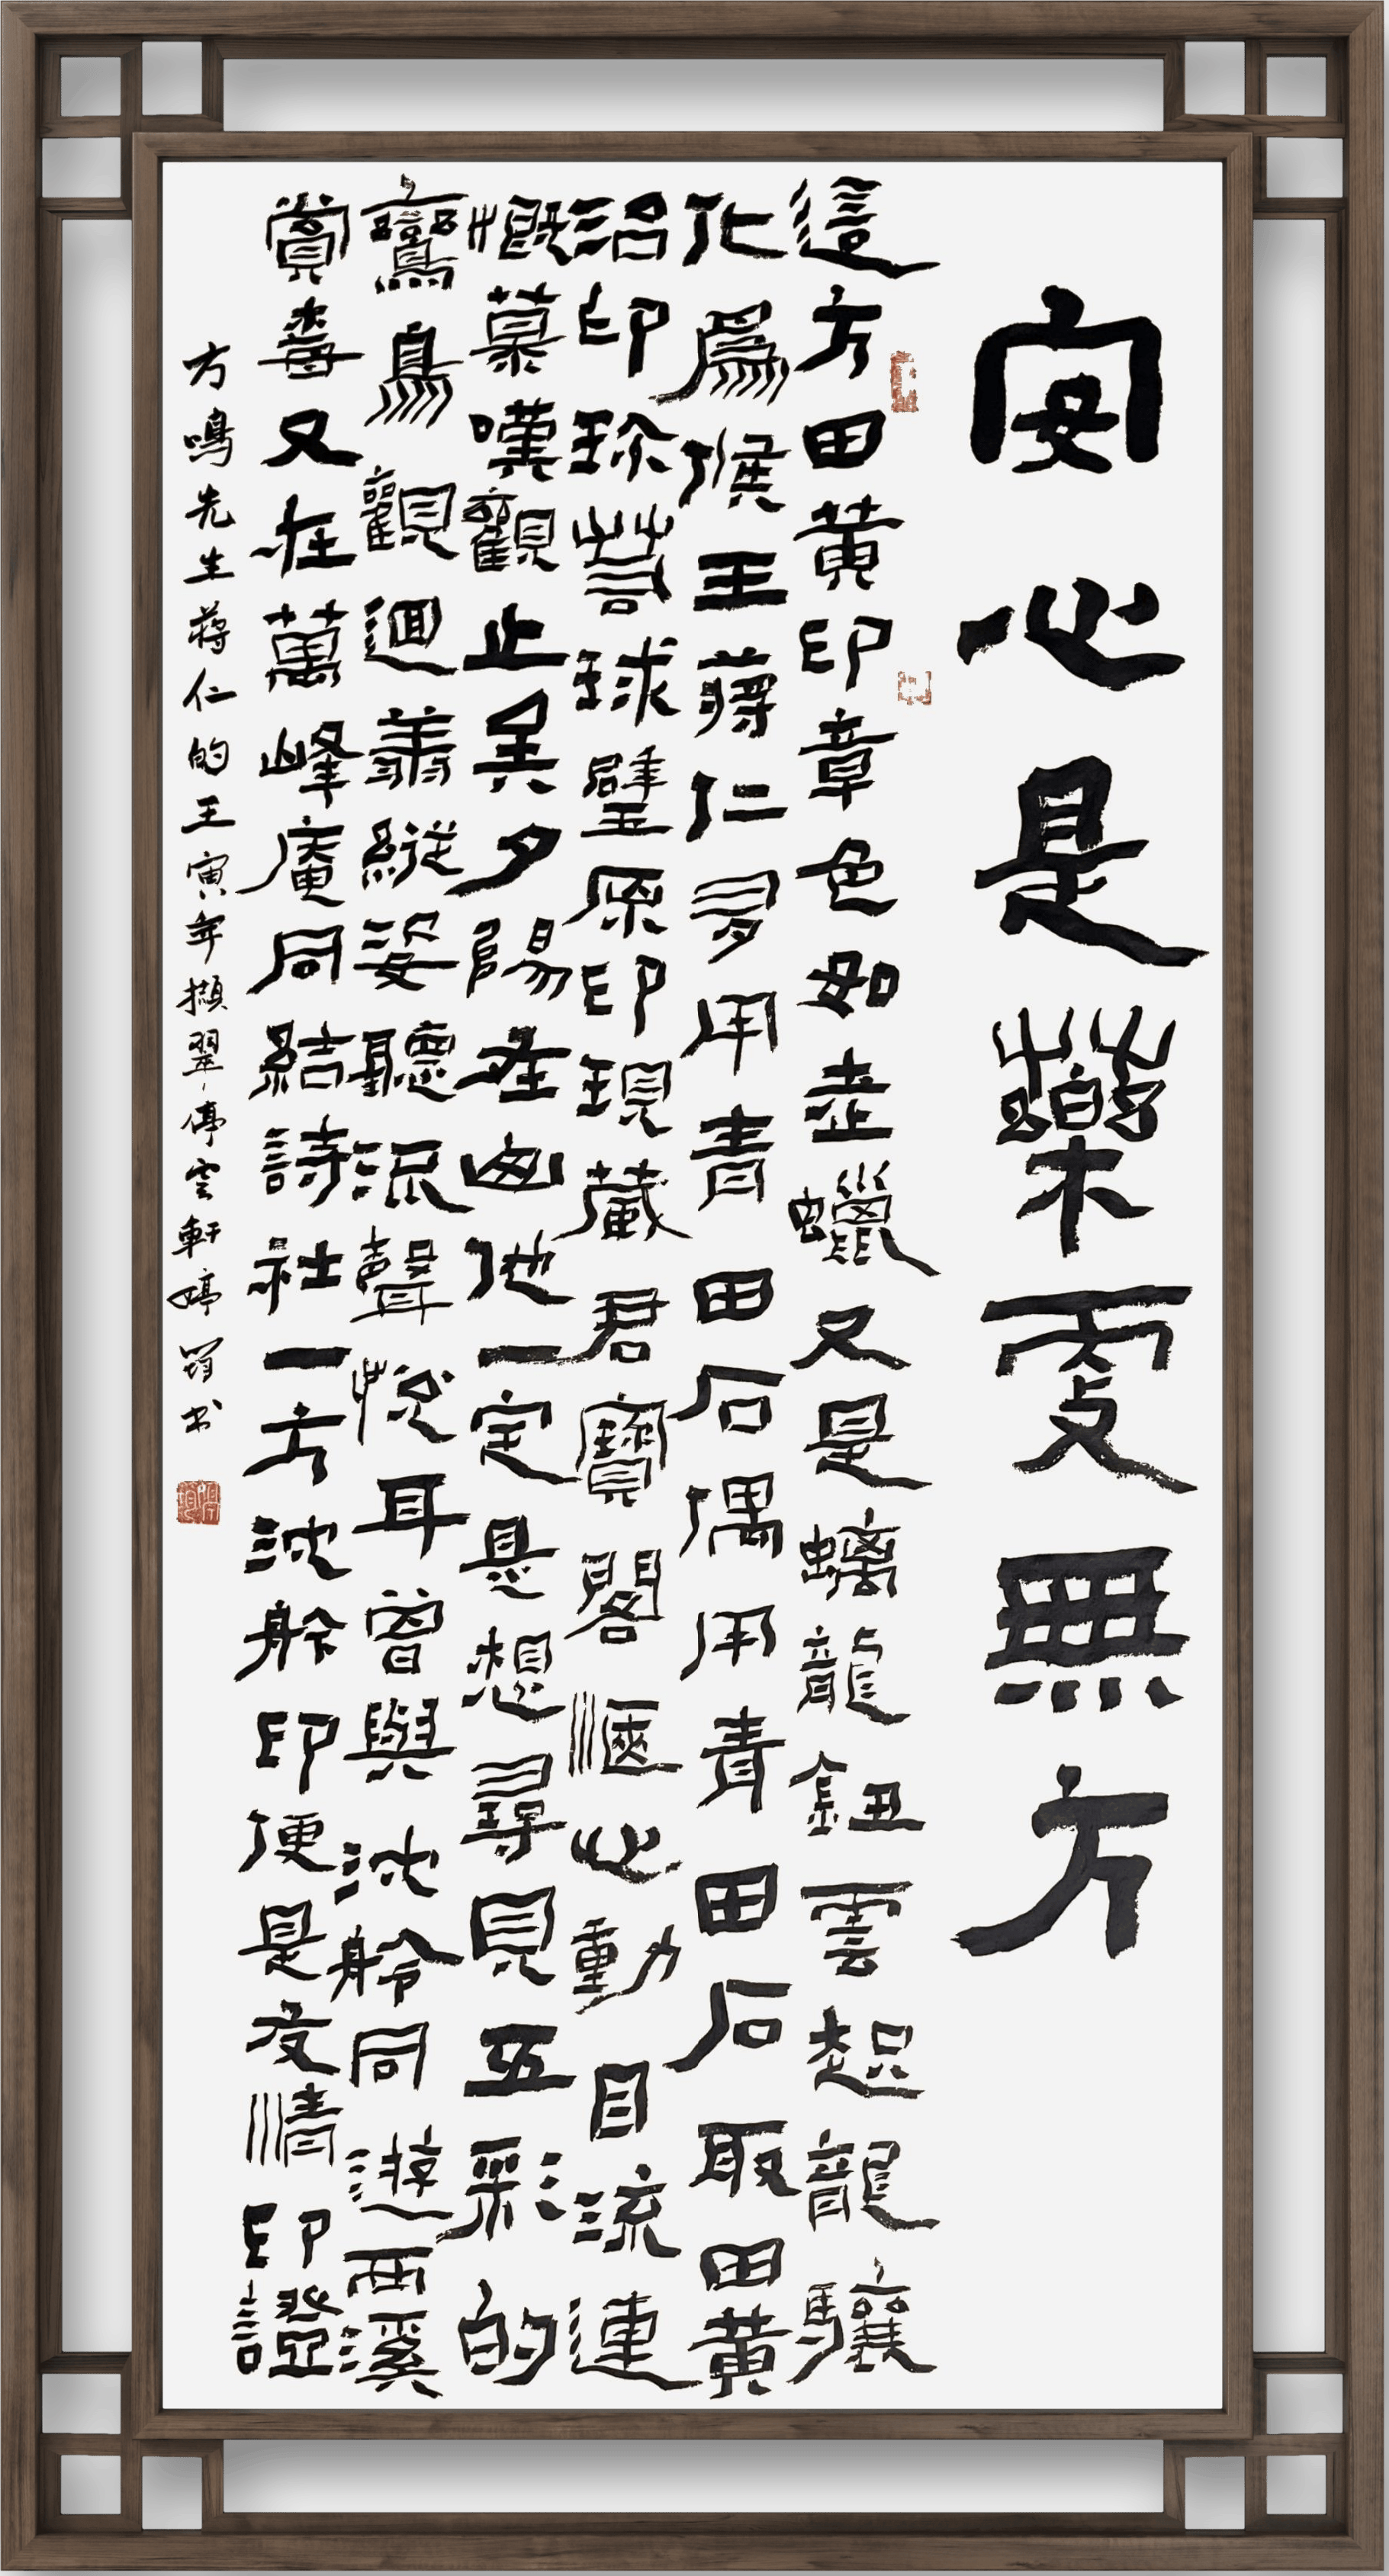 安心是藥更無方
這方田黃印章色如壺蠟又是螭龍鈕雲起龍驤
化爲侯王蔣仁多用青田石偶用青田石取田黃
治印珍若球璧原印現藏君寶閣愜心動目流連
慨慕嘆觀止矣夕陽在山他一定是想尋見五彩的
鸞鳥觀迴翥縱姿聽流聲悅耳曾與沈舲同遊西溪
賞梅又在萬峰庵同結詩社一方沈舲印便是友情印證
方鳴先生蔣仁的王寅年擷翠停雲軒婷書